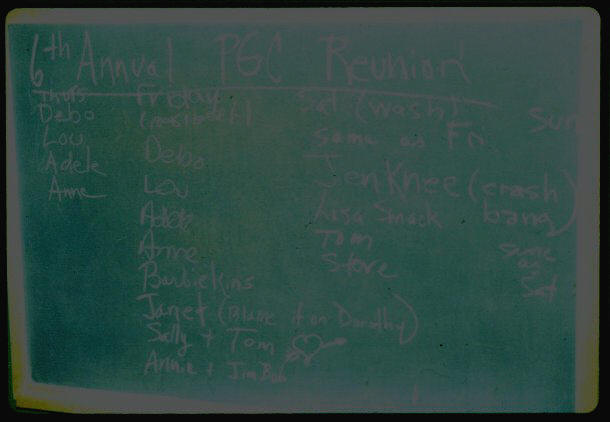 6th Annual PGC Reunion
Thurs
Debo
Lou
Adele
Anne
Friday
Debo
Lou
Adele
Anne
Barbiekins
Janet (Blame it on Dorothy)
Sally + Tom
Annie + Jim Bob
Sat (wash)
same as Fri
JenKnee (crash bang)
Lisa Smack
Tom
Steve
Sun
same
as
Sat